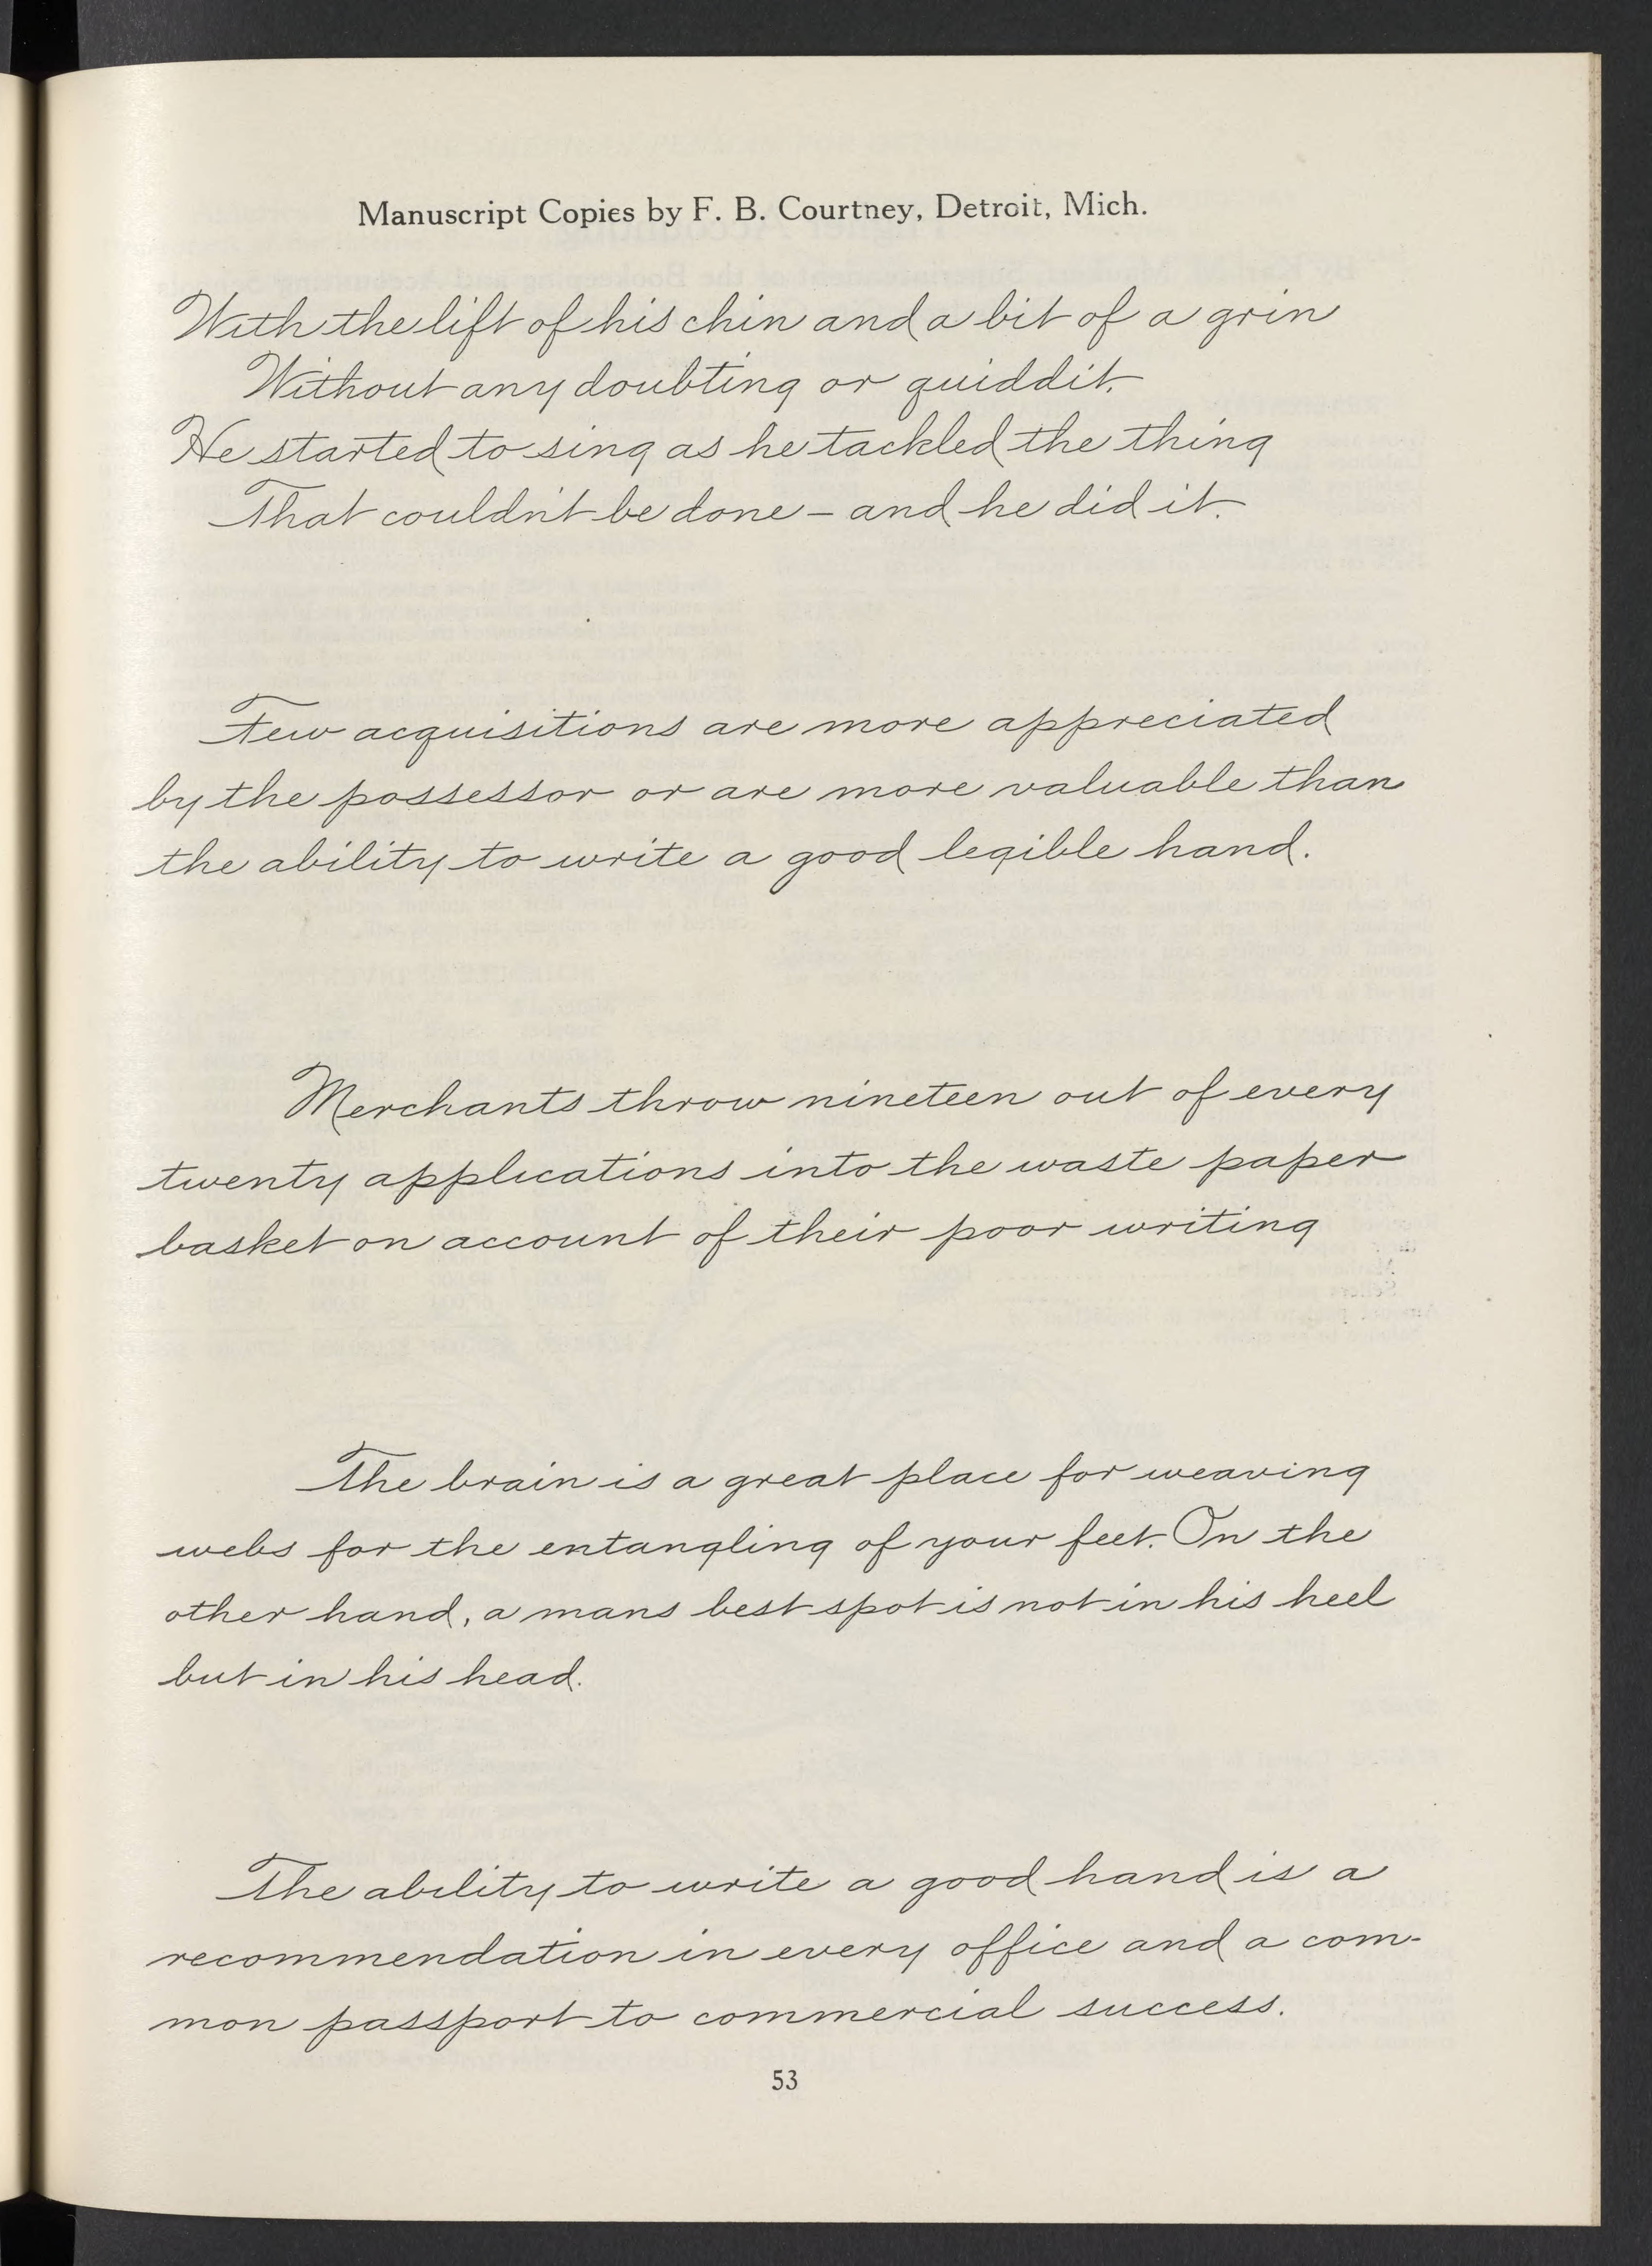 Manuscript Copies by F. B. Courtney, Detroit, Mich.
With the lift of his chin and a bit of a grin
Without any doubting or quiddit.
He started to sing as he tackled the thing
That couldn't be done – and he did it.
Few acquisitions are more appreciated
by the possessor or are more valuable than
the ability to write a good legible hand.
Merchants throw nineteen out of every
twenty applications into the waste paper
basket on account of their poor writing
The brain is a great place for weaving
webs for the entangling of your feet. On the
other hand, a mans best spot is not in his heel
but in his head.
The ability to write a good hand is a
recommendation in every office and a com-
mon passport to commercial success.
53